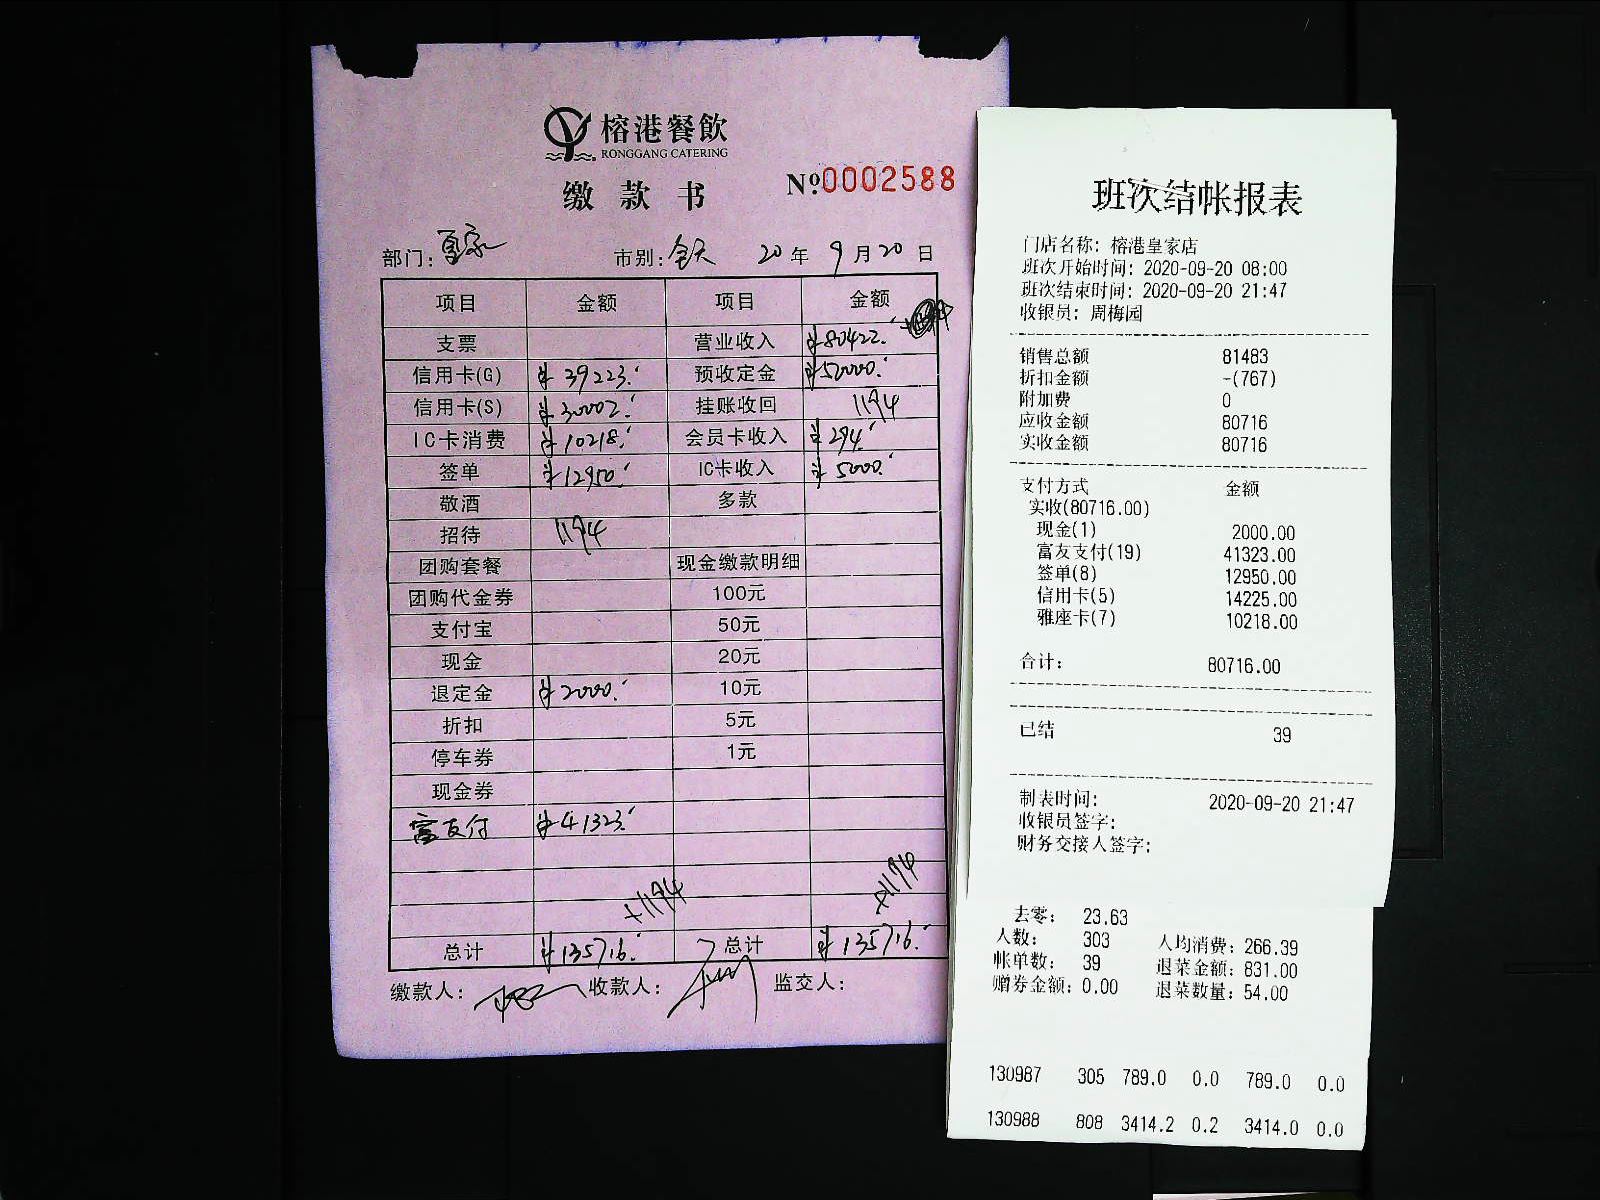 榕港餐飲
RONGGANG CATERING
缴款书
№0002588
部门: 皇家 市别: 全天 20年 9月20日
项目 金额 项目 金额
支票 营业收入 ¥80422.
信用卡(G) ¥39223. 预收定金 ¥50000.
信用卡(S) ¥30002. 挂账收回 1194
IC卡消费 ¥10218. 会员卡收入 ¥294.
签单 ¥12950. IC卡收入 ¥5000.
敬酒 多款
招待 1194
团购套餐 现金缴款明细
团购代金券 100元
支付宝 50元
现金 20元
退定金 ¥2000. 10元
折扣 5元
停车券 1元
现金券
富友付 ¥41323.
+1194 +1194
总计 ¥135716. 总计 ¥135716.
缴款人: 收款人: 监交人:
班次结帐报表
门店名称: 榕港皇家店
班次开始时间: 2020-09-20 08:00
班次结束时间: 2020-09-20 21:47
收银员: 周梅园
销售总额 81483
折扣金额 -(767)
附加费 0
应收金额 80716
实收金额 80716
支付方式 金额
实收(80716.00)
现金(1) 2000.00
富友支付(19) 41323.00
签单(8) 12950.00
信用卡(5) 14225.00
雅座卡(7) 10218.00
合计: 80716.00
已结 39
制表时间: 2020-09-20 21:47
收银员签字:
财务交接人签字:
去零: 23.63
人数: 303 人均消费: 266.39
帐单数: 39 退菜金额: 831.00
赠券金额: 0.00 退菜数量: 54.00
130987 305 789.0 0.0 789.0 0.0
130988 808 3414.2 0.2 3414.0 0.0